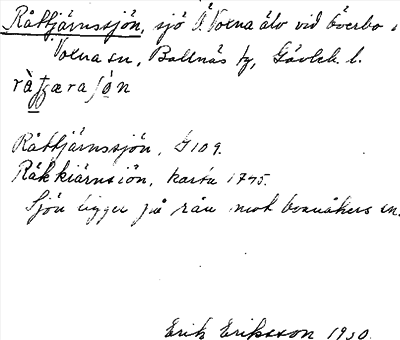 Råttjärnssjön, sjö Å Voxna älv vid överbo i
Voxna sn, Bollnäs tg, Gävleb. l.
Råttjärnssjön, G 109.
Råkkiärnsiön, karta 1775.
Sjön ligger på rån mot bosnåkers sn.
Erik Eriksson 1930.